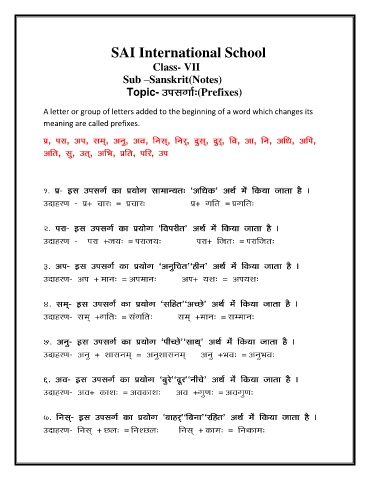 SAI International School
Class- VII
Sub –Sanskrit(Notes)
Topic- उपसर्गाः(Prefixes)
A letter or group of letters added to the beginning of a word which changes its
meaning are called prefixes.
प्र, परा, अप, सम्, अनु, अव, निस्, निर्, दुस्, दुर्, वि, आ, नि, अधि, अपि,
अति, सु, उत्, अभि, प्रति, परि, उप
१. प्र- इस उपसर्ग का प्रयोग सामान्यतः 'अधिक' अर्थ में किया जाता है ।
उदाहरण - प्र+ चारः = प्रचारः प्र+ गति = प्रगतिः
२. परा- इस उपसर्ग का प्रयोग 'विपरीत' अर्थ में किया जाता है ।
उदाहरण - परा +जयः = पराजयः परा+ जितः = पराजितः
३. अप- इस उपसर्ग का प्रयोग 'अनुचित''हीन' अर्थ में किया जाता है ।
उदाहरण- अप + मानः = अपमानः अप+ यशः = अपयशः
४. सम्- इस उपसर्ग का प्रयोग 'सहित''अच्छे' अर्थ में किया जाता है ।
उदाहरण- सम् +गतिः = संगतिः सम् +मानः = सम्मानः
५. अनु- इस उपसर्ग का प्रयोग 'पीच्छे''साथ्' अर्थ में किया जाता है ।
उदाहरण- अनु + शासनम् = अनुशासनम् अनु +भवः = अनुभवः
६. अव- इस उपसर्ग का प्रयोग 'बुरे''दूर''नीचे' अर्थ में किया जाता है ।
उदाहरण- अव+ काशः = अवकाशः अव +गुणः = अवगुणः
७. निस्- इस उपसर्ग का प्रयोग 'बाहर्''बिना''रहित' अर्थ में किया जाता है ।
उदाहरण- निस् + छलः = निश्छलः निस् + कामः = निष्कामः